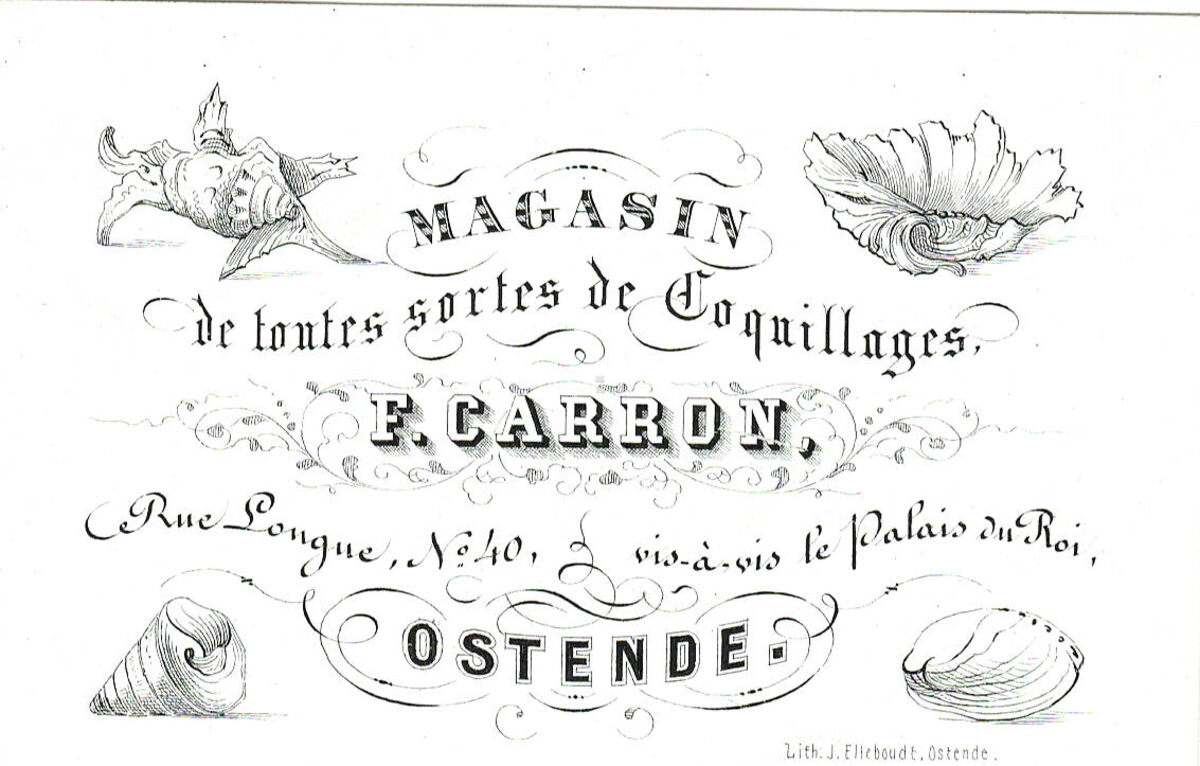 MAGASIN
de toutes sortes de Coquillages.
F. CARRON,
Rue Longue, No. 40, vis-à-vis le Palais du Roi,
OSTENDE.
Lith. J. Elleboudt, Ostende.